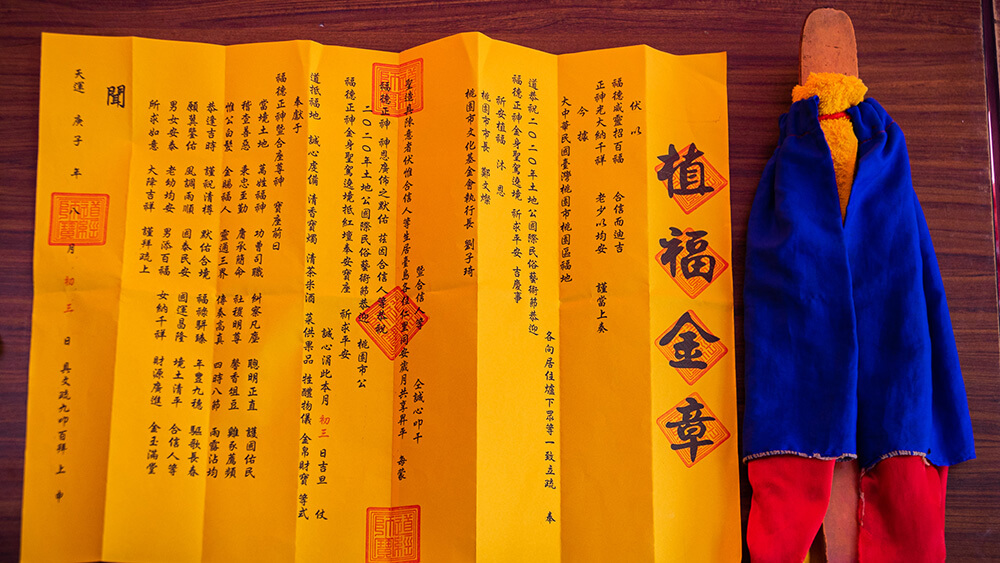 植福金章
伏以
福德威靈招百福 合信而迪吉
正神光大納千祥 老少以均安 謹當上奏
今據
大中華民國臺灣桃園市桃園區福地
各向居住爐下眾等一致立疏 奏
道恭祝二０二０年土地公國際民俗藝術節恭迎
福德正神金身聖駕遶境 祈求平安 吉慶事
祈安植福 沐恩
桃園市市長 鄭文燦
桃園市文化基金會執行長 劉子琦
暨合信人等 仝誠心叩干
聖造具陳意者伏惟合信人等生居臺島各住仁里同安歲月共享昇平 每蒙
福德正神 神恩廣佈之默佑 茲因合信人等恭祝
二０二０年土地公國際民俗藝術節恭迎 桃園市公
福德正神金身聖駕遶境抵紅壇奉安寶座 祈求平安
道抵福地 誠心虔備 清香寶燭 清茶米酒 菜供果品 牲醴物儀 金帛財寶 等式
誠心涓此本月 初三 日吉旦 仗
奉獻于
福德正神暨合座尊神 寶座前日
當境土地 萬姓福神 功曹司職 糾察凡座 聰明正直 護國佑民
稽查善惡 秉忠至勤 膺承簡命 社稷明尊 馨香俎豆 雞豕薦頻
惟公白髮 金賜福人 靈通三界 傳奏高真 四時八節 雨露沾均
恭逢吉時 謹祝清樽 默佑合境 福祿駢臻 年豐九穗 驅歌長春
願冀擎佑 風調雨順 國泰民安 國運昌隆 境土清平 合信人等
男女安泰 老幼均安 男添百福 女納千祥 財源廣進 金玉滿堂
所求如意 大降吉祥 謹拜疏上
聞
天運 庚子 年 八 月 初三 日 具文疏九叩百拜上 申